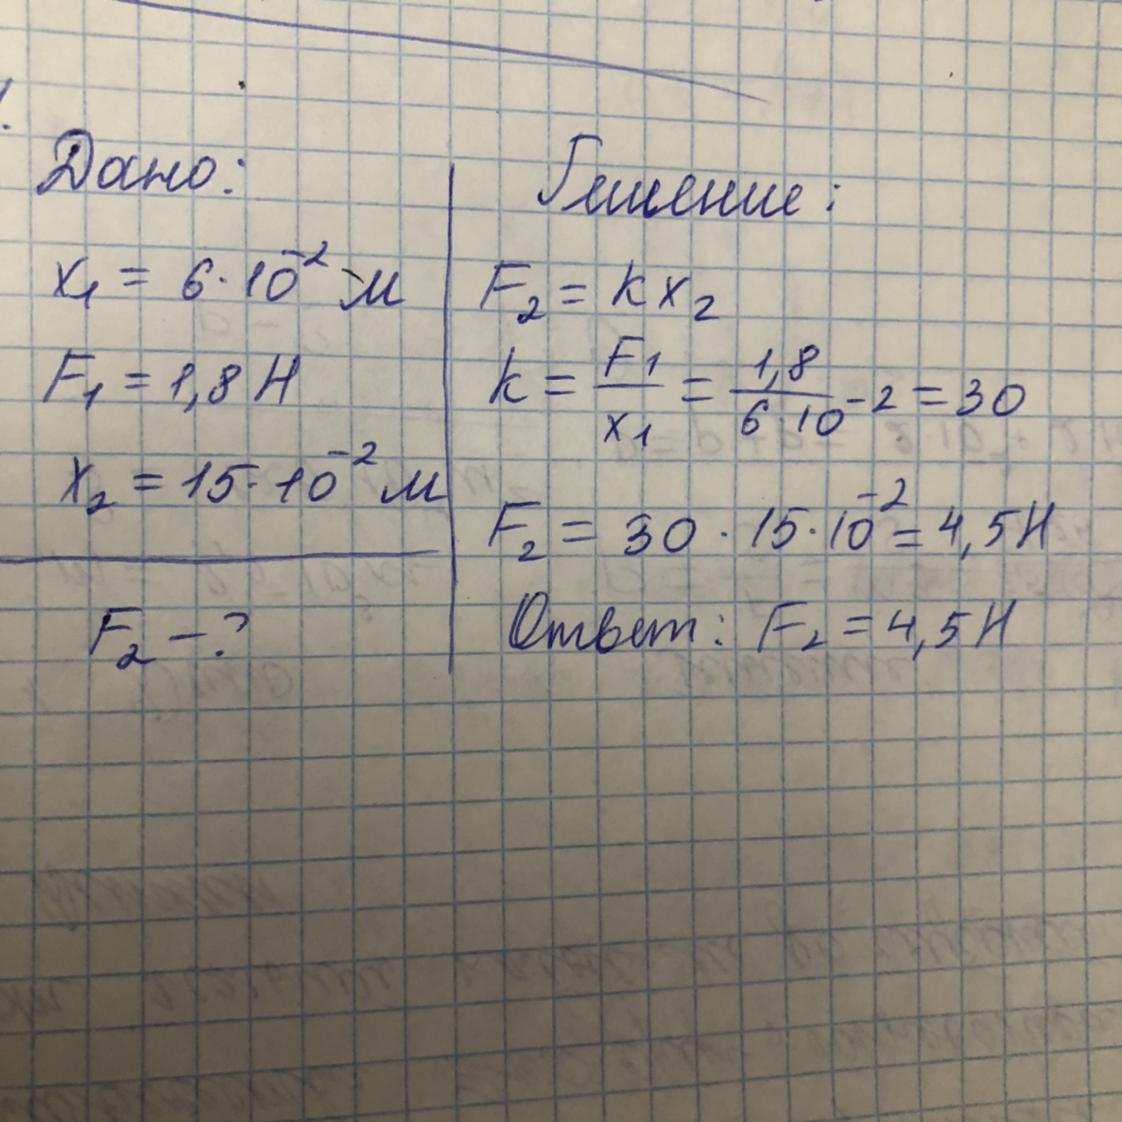 Дано:
x₁ = 6·10⁻² м
F₁ = 1,8 Н
x₂ = 15·10⁻² м
F₂ – ?
Решение:
F₂ = k x₂
k = F₁/x₁ = 1,8/6·10⁻² = 30
F₂ = 30 · 15·10⁻² = 4,5 Н
Ответ: F₂ = 4,5 Н